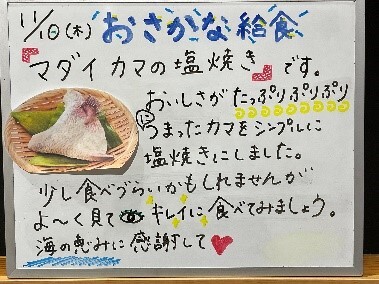 11/10(木) おさかな給食
「マダイカマの塩焼き」です。
おいしさが たっぷりぷりぷり
につまったカマをシンプルに
塩焼きにしました。
少し食べづらいかもしれませんが
よ〜く見て キレイに食べてみましょう。
海の恵みに感謝して